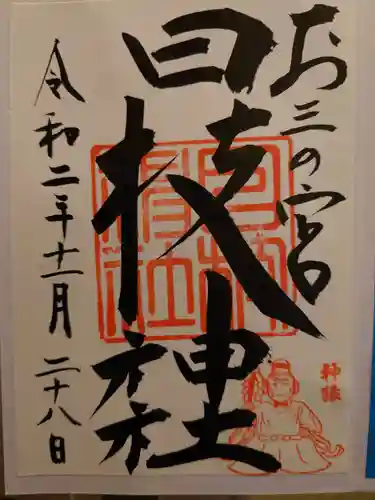 お三の宮
日枝神社
令和二年十二月二十八日
神猿